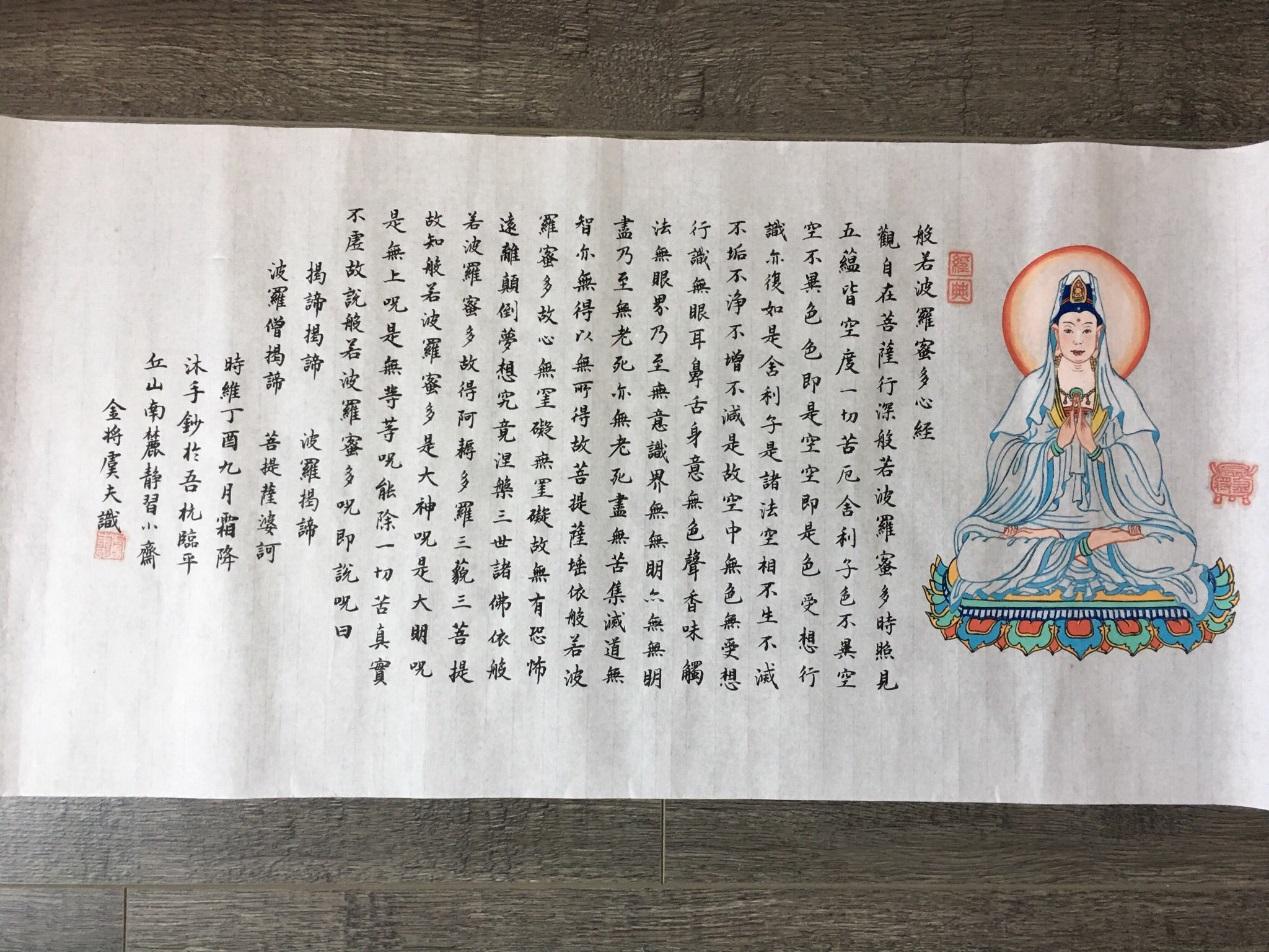 般若波羅蜜多心經
觀自在菩薩行深般若波羅蜜多時照見
五蘊皆空度一切苦厄舍利子色不異空
空不異色色即是空空即是色受想行
識亦復如是舍利子是諸法空相不生不滅
不垢不淨不增不減是故空中無色無受想
行識無眼耳鼻舌身意無色聲香味觸
法無眼界乃至無意識界無無明亦無無明
盡乃至無老死亦無老死盡無苦集滅道無
智亦無得以無所得故菩提薩埵依般若波
羅蜜多故心無罣礙無罣礙故無有恐怖
遠離顛倒夢想究竟涅槃三世諸佛依般
若波羅蜜多故得阿耨多羅三藐三菩提
故知般若波羅蜜多是大神呪是大明呪
是無上呪是無等等呪能除一切苦真實
不虛故說般若波羅蜜多呪即說呪曰
揭諦揭諦 波羅揭諦
波羅僧揭諦 菩提薩婆訶
時維丁酉九月霜降
沐手鈔於吾杭臨平
丘山南麓靜習小齋
金將虞夫識
經典